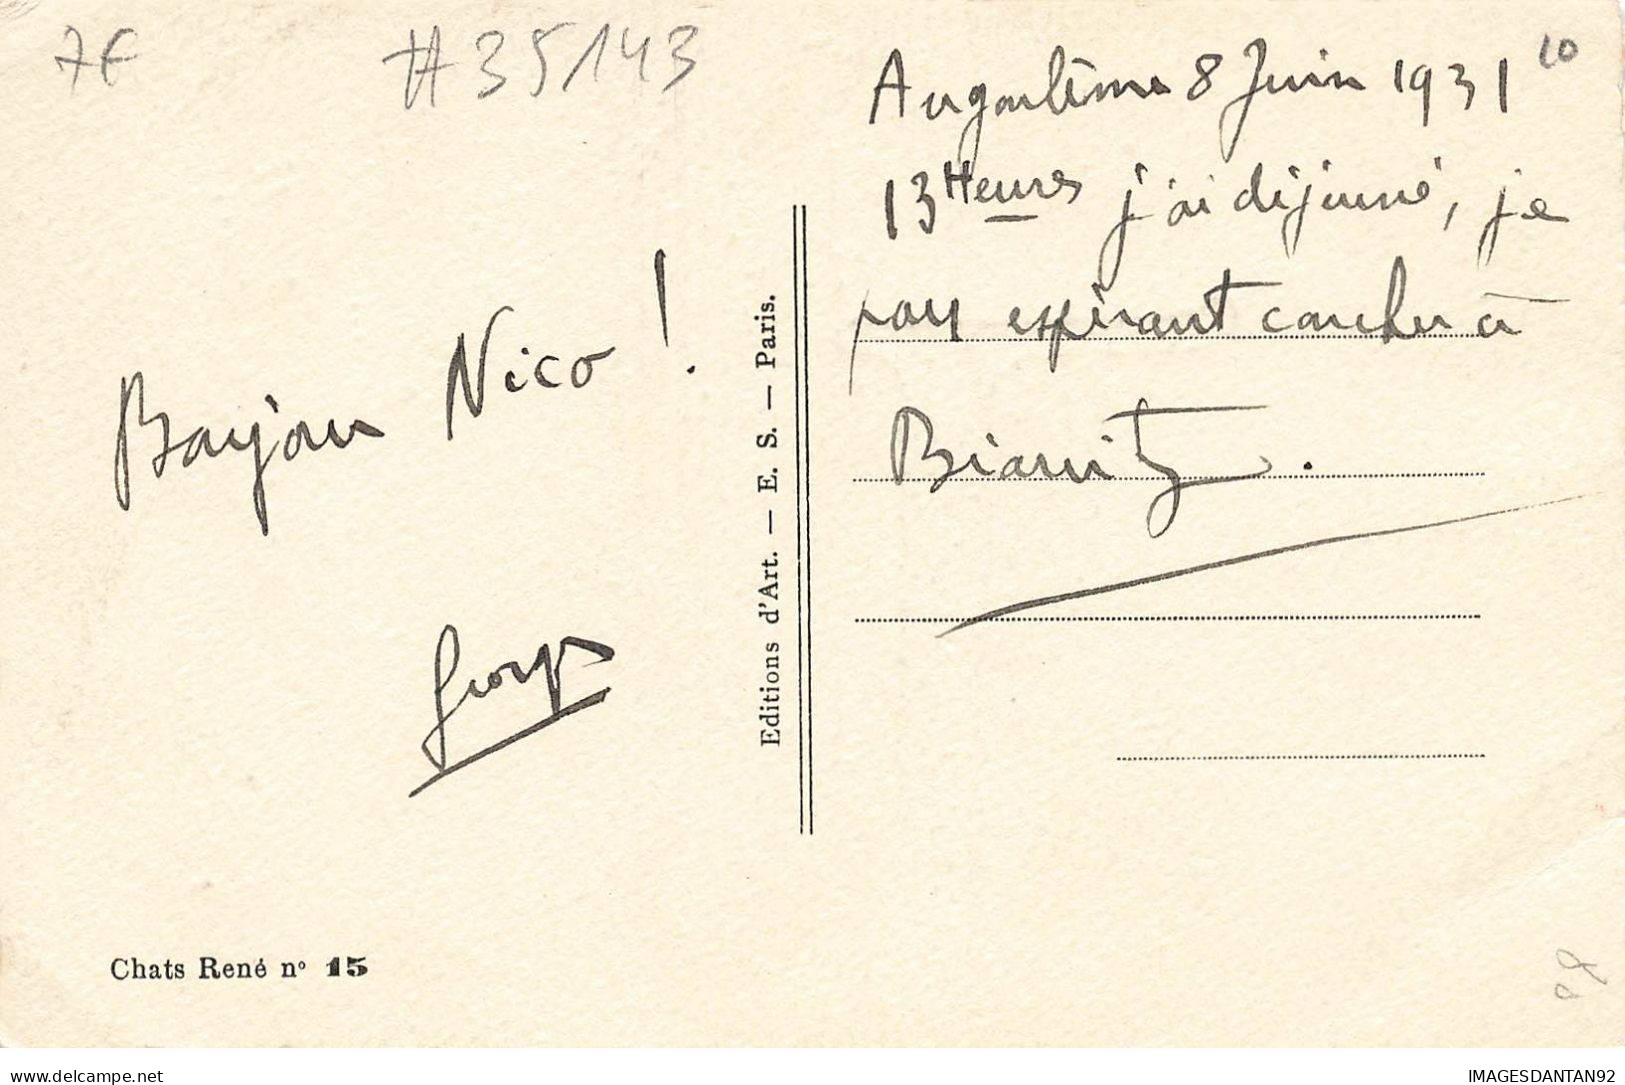 7€
#35143
10
Angoulême 8 Juin 1931
13 Heures j'ai déjeuné, je
pars espérant coucher à
Biarritz.
Bonjour Nico !
Georges
Editions d'Art. — E. S. — Paris.
Chats René n° 15
IMAGESDANTAN92
https://www.delcampe.net